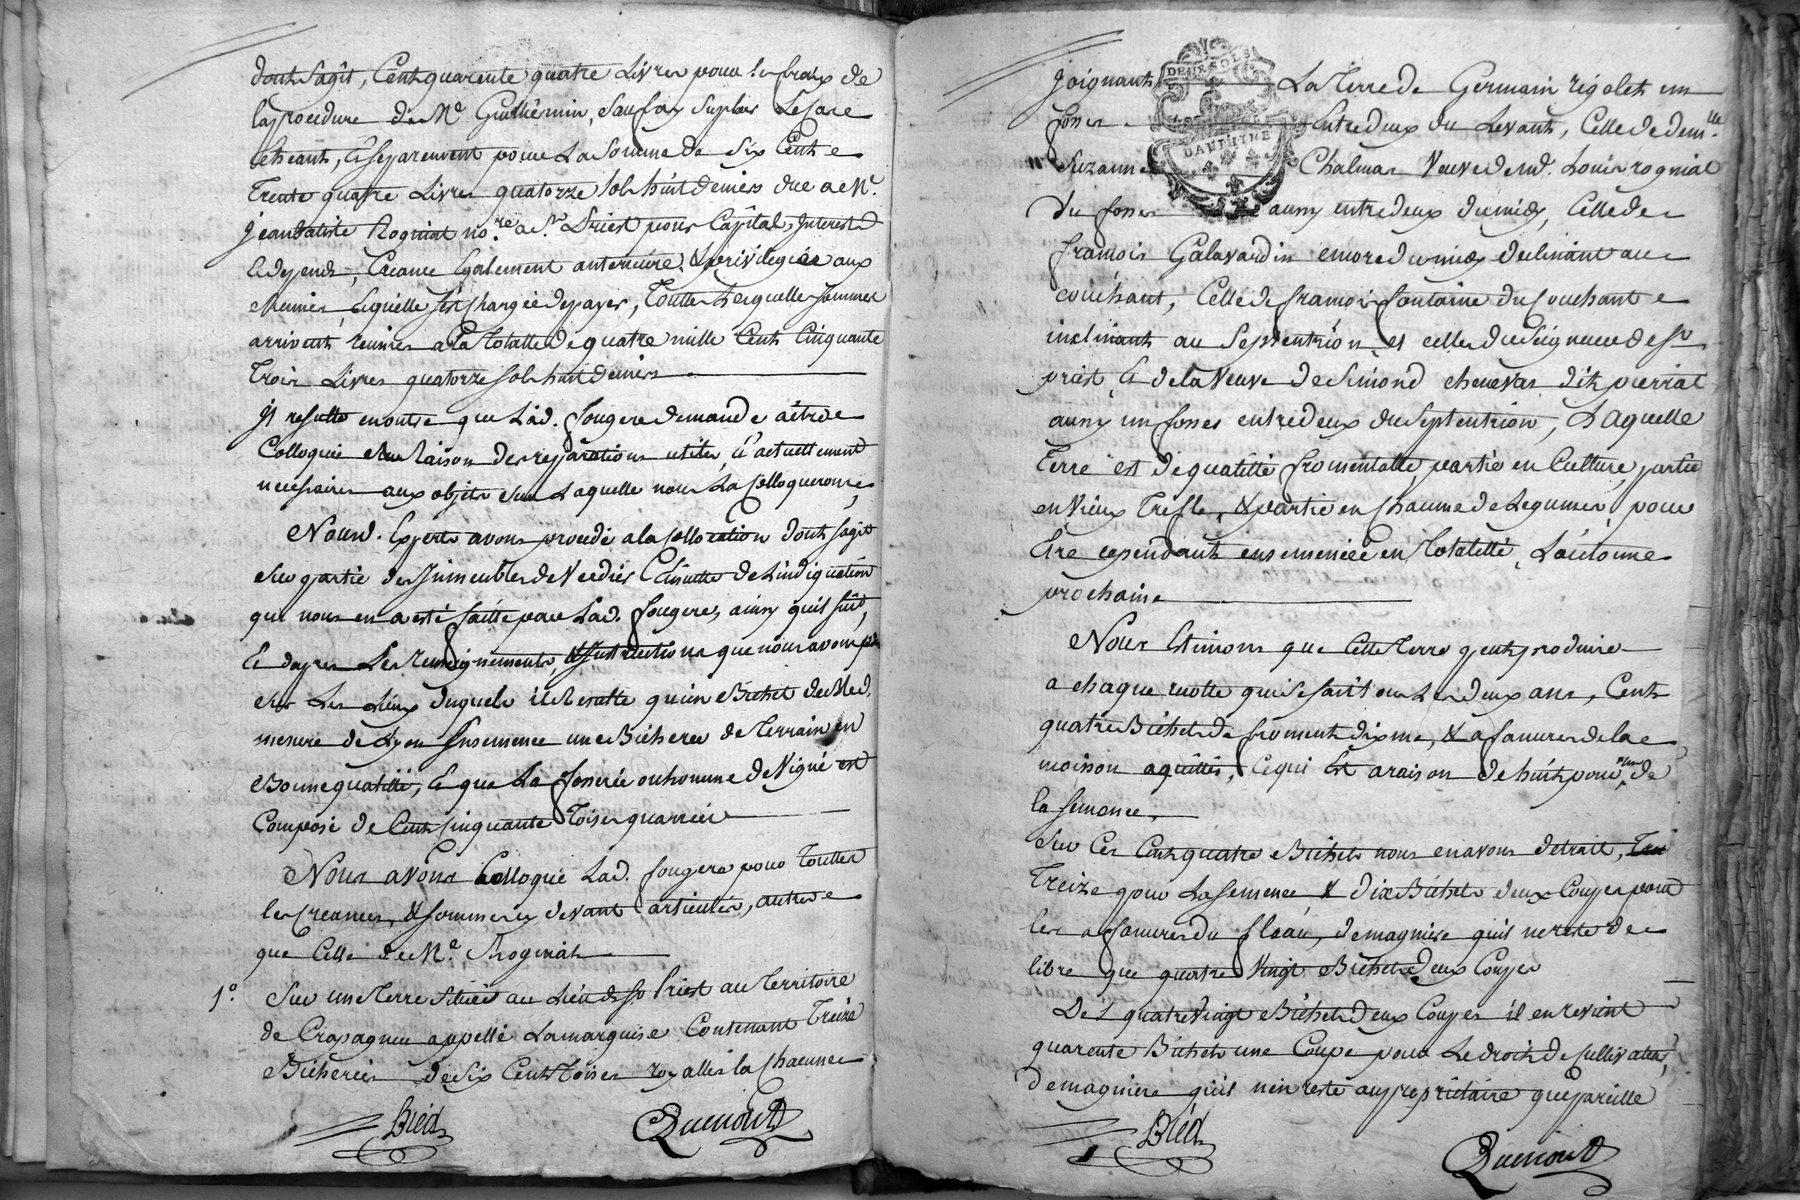 dont s'agit, Cent quarente quatre Livres pour les fraix de
la procedure de Me Guilhermin, sauf a y supler Le Case
echeant, & separement pour La Somme de Six Cent
Trente quatre Livres quatorze sols huit deniers due a Me
jean batiste Rogniat nore a St Priest pour Capital, Interest
& depends, Creance Egalement anterieure & privilegiée aux
siennes, Laquelle s'est chargée de payer, Touttes lesquelles sommes
arrivent reunies a la totalle de quatre mille Cent Cinquante
Trois Livres quatorze sols huit deniers
Il resulte en outre que Lad. fougere demande a être
Colloquée en raison des reparations utiles & actuellement
necessaires aux objets sur Laquelle nous La Colloquerons,
Nousd. Experts avons procedé a la collocation dont s'agit
sur partie des Immeubles de Verdier Ensuitte de L'indiquation
qui nous en a esté faitte par Lad. fougere, ainsy qu'il suit,
& dapres Les renseignements & Instructions que nous avons pris
sur Les Lieux desquels il Resulte qu'un Bichet de bled.
mesure de Lyon Ensemence une Bicherée de Terrain en
Bonne qualité, & que La fosserée ou homme de Vigne est
Composé de Cent cinquante Toises quarrées
Nous avons Colloqué Lad. fougere pour Touttes
les creances, & sommes cy devant articulées, autres
que Celle de Me Rogniat
1º. Sur un Terre Située au Lieu de St Priest au Territoire
de Crapagneu appellé Lamarquise Contenant Treize
Bicherées de Six Cent Toises royalles la Chacune
Bied
Quenoud
DEUX SOLS
DAUPHINE
Joignant La Terre de Germain rigolet un
fosses Entredeux du Levant, Celle de demlle
Suzanne Chalmas Veuve de md. Louis rogniat
Un fosses aussy entredeux du midy, Celle de
francois Galavardin encore du midy declinant au
couchant, Celle de francois fontaine du couchant
inclinant au Septentrion et celle du Seigneur de St
priest, & de la Veuve de Simond chenevas dit pierriat
aussy un fosses entredeux du Septentrion, Laquelle
Terre est de qualitté fromentalle, partie en Culture, partie
en Vieux Trefle, & partie en Chaume de Legumes, pour
Etre cependant ensemencée en totalité, L'autonne
prochaine
Nous Estimons que Cette Terre peut produire
a chaque recolte qui se fait tous Les deux ans, Cent
quatre Bichets de froment dixme, & affanures de la
moisson aquittés, Ce qui Est a raison de huit pour un de
la Semence,
Sur Ces Cent quatre Bichets nous en avons detrait,
Treize pour La Semence & dix Bichets deux Coupes pour
les affanures du fleau, de magniere quil ne reste de
libre que quatre Vingt Bichets deux Coupes
De S quatre Vingt Bichets deux Coupes il en revient
quarente Bichets une Coupe pour Le droit de Cultivateur,
de magniere quil n'en reste au proprietaire que pareille
Bied
Quenoud